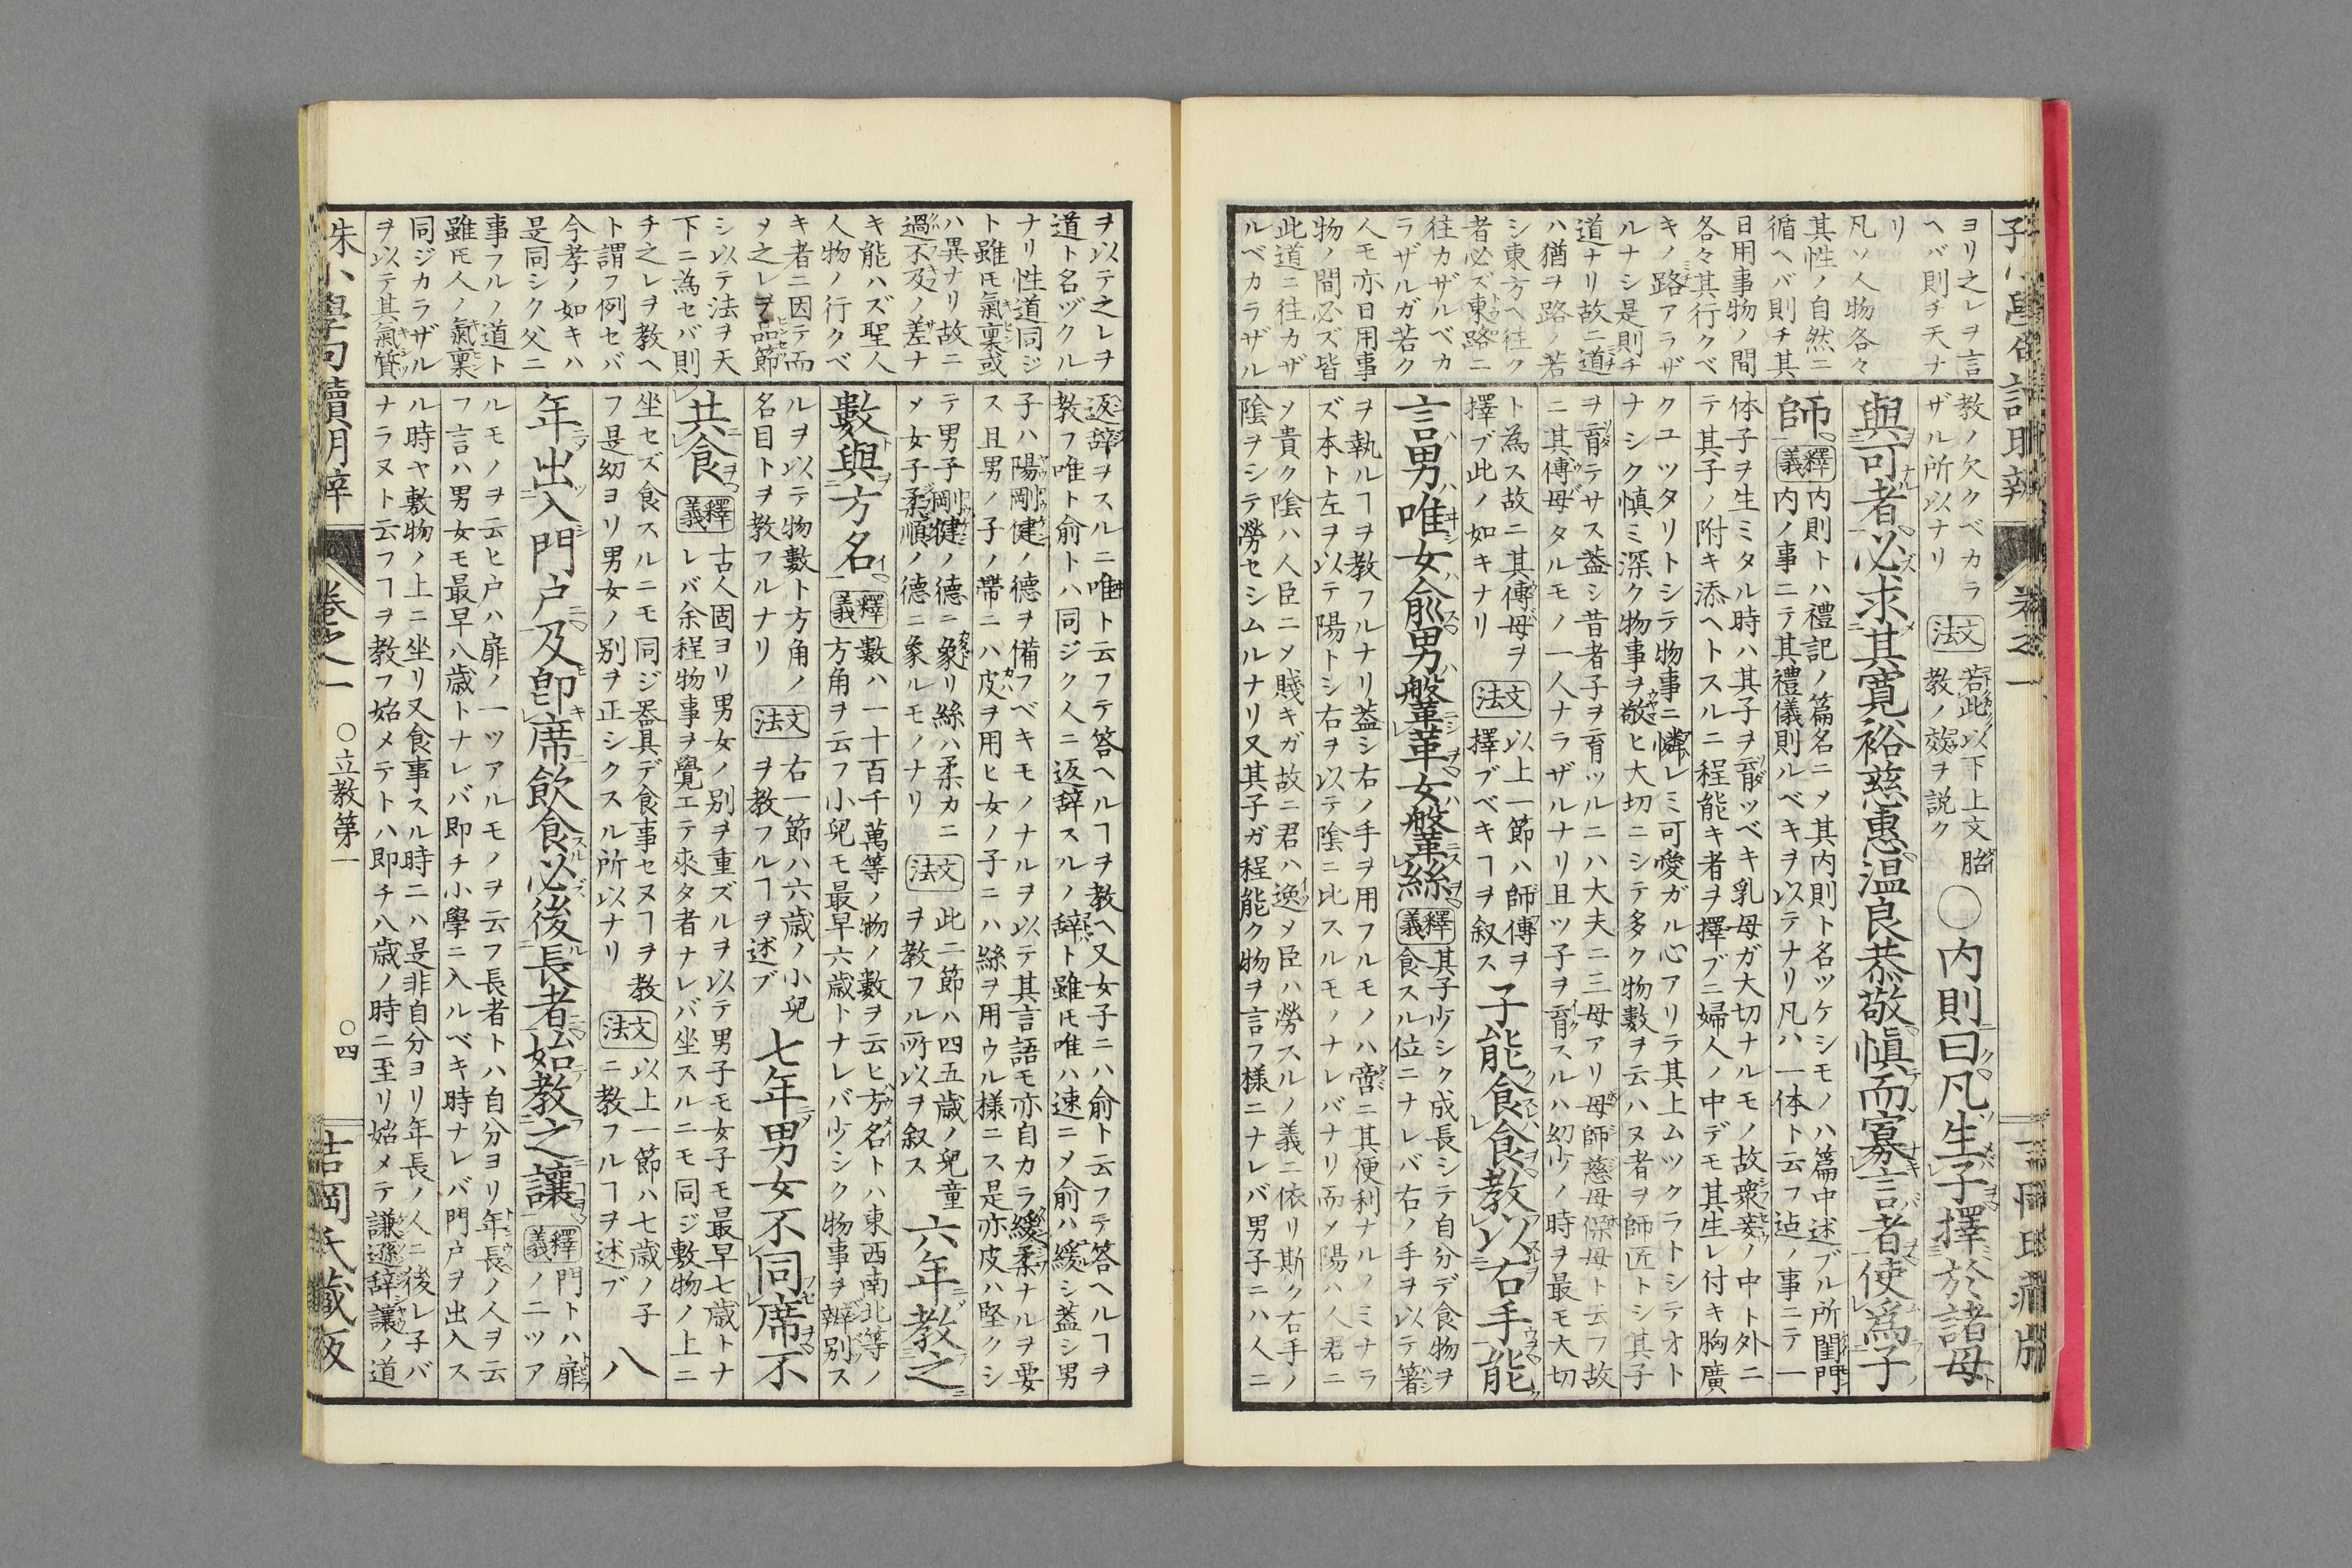 ヨリ之レヲ言
ヘバ則チ天ナ
リ
凡ソ人物各々
其性ノ自然ニ
循ヘバ則チ其
日用事物ノ間
各々其行クベ
キノ路アラザ
ルナシ是則チ
道ナリ故ニ道
ハ猶ヲ路ノ若
シ東方ヘ往ク
者必ズ東路ニ
往カザルベカ
ラザルガ若ク
人モ亦日用事
物ノ間必ズ皆
此道ニ往カザ
ルベカラザル
教ノ欠クベカラ
ザル所以ナリ
文法
若此以下上文胎
教ノ效ヲ説ク
○内則曰凡生子擇於諸母
與可者必求其寛裕慈惠温良恭敬愼而寡言者使爲子
師
釋義
内則トハ禮記ノ篇名ニメ其内則ト名ツケシモノハ篇中述ブル所閨門
内ノ事ニテ其禮儀則ルベキヲ以テナリ凡ハ一体ト云フ辿ノ事ニテ一
体子ヲ生ミタル時ハ其子ヲ育ツベキ乳母ガ大切ナルモノ故衆妾ノ中ト外ニ
テ其子ノ附キ添ヘトスルニ程能キ者ヲ擇ブニ婦人ノ中デモ其生レ付キ胸廣
クユツタリトシテ物事ニ憐レミ可愛ガル心アリテ其上ムツクラトシテオト
ナシク慎ミ深ク物事ヲ敬ヒ大切ニシテ多ク物數ヲ云ハヌ者ヲ師匠トシ其子
ヲ育テサス葢シ昔者子ヲ育ツルニハ大夫ニ三母アリ母師慈母保母ト云フ故
ニ其傅母タルモノ一人ナラザルナリ且ツ子ヲ育スルハ幼少ノ時ヲ最モ大切
ト為ス故ニ其傅母ヲ
擇ブ此ノ如キナリ
文法
以上一節ハ師傅ヲ
擇ブベキヿヲ叙ス
子能食食教以右手能
言男唯女兪男鞶革女鞶絲
釋義
其子少シク成長シテ自分デ食物ヲ
食スル位ニナレバ右ノ手ヲ以テ箸
ヲ執ルヿヲ教フルナリ葢シ右ノ手ヲ用フルモノハ啻ニ其便利ナルノミナラ
ズ本ト左ヲ以テ陽トシ右ヲ以テ陰ニ比スルモノナレバナリ而メ陽ハ人君ニ
メ貴ク陰ハ人臣ニメ賤キガ故ニ君ハ逸メ臣ハ勞スルノ義ニ依リ斯ク右手ノ
陰ヲシテ勞セシムルナリ又其子ガ程能ク物ヲ言フ様ニナレバ男子ニハ人ニ
ヲ以テ之レヲ
道ト名ヅクル
ナリ性道同ジ
ト雖モ氣稟或
ハ異ナリ故ニ
過不及ノ差ナ
キ能ハズ聖人
人物ノ行クベ
キ者ニ因テ而
ヲ之レヲ品節
シ以テ法ヲ天
下ニ為セバ則
チ之レヲ教ヘ
ト謂フ例セバ
今孝ノ如キハ
是同シク父ニ
事フルノ道ト
雖モ人ノ氣稟
同ジカラザル
ヲ以テ其氣質
返辞ヲスルニ唯ト云フテ答ヘルヿヲ教ヘ又女子ニハ俞ト云フテ答ヘルヿヲ
教フ唯ト俞トハ同ジク人ニ返辞スルノ辞ト雖モ唯ハ速ニメ俞ハ緩シ葢シ男
子ハ陽剛健ノ德ヲ備フベキモノナルヲ以テ其言語モ亦自カラ緩柔ナルヲ要
ス且男ノ子ノ帶ニハ皮ヲ用ヒ女ノ子ニハ絲ヲ用ウル様ニス是亦皮ハ堅クシ
テ男子剛健ノ德ニ象リ絲ハ柔カニ
メ女子柔順ノ德ニ象ルモノナリ
文法
此二節ハ四五歳ノ兒童
ヲ教フル所以ヲ叙ス
六年教之
數與方名
釋義
數ハ一十百千萬等ノ物ノ數ヲ云ヒ方名トハ東西南北等ノ
方角ヲ云フ小兒モ最早六歳トナレバ少シク物事ヲ辨別ス
ルヲ以テ物數ト方角ノ
名目トヲ教フルナリ
文法
右一節ハ六歳ノ小兒
ヲ教フルヿヲ述ブ
七年男女不同席不
共食
釋義
古人固ヨリ男女ノ別ヲ重ズルヲ以テ男子モ女子モ最早七歳トナ
レバ余程物事ヲ覺エテ來タ者ナレバ坐スルニモ同ジ敷物ノ上ニ
坐セズ食スルニモ同ジ器具デ食事セヌヿヲ教
フ是幼ヨリ男女ノ別ヲ正シクスル所以ナリ
文法
以上一節ハ七歳ノ子
ニ教フルヿヲ述ブ
八
年出入門户及卽席飲食必後長者始教之讓
釋義
門トハ扉ノ二ツア
ルモノヲ云ヒ户ハ扉ノ一ツアルモノヲ云フ長者トハ自分ヨリ年長ノ人ヲ云
フ言ハ男女モ最早八歳トナレバ即チ小學ニ入ルベキ時ナレバ門户ヲ出入ス
ル時ヤ敷物ノ上ニ坐リ又食事スル時ニハ是非自分ヨリ年長ノ人ニ後レ子バ
ナラヌト云フヿヲ教フ始メテトハ即チ八歳ノ時ニ至リ始メテ謙遜辞讓ノ道
朱小學句讀明辨
卷之一
○立教第一
○四
吉岡氏藏版